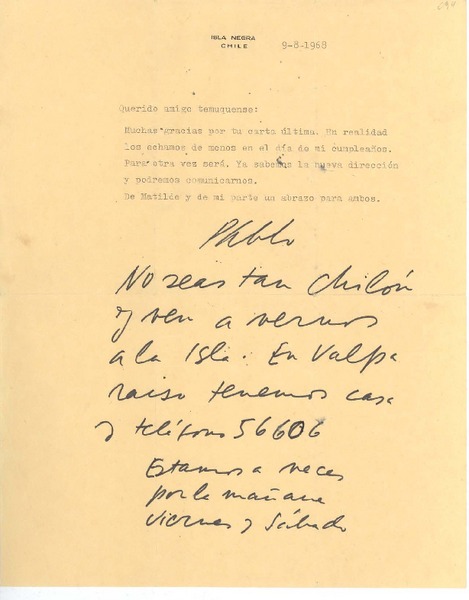 694
ISLA NEGRA
CHILE
9-8-1968
Querido amigo temuquense:
Muchas gracias por tu carta última. En realidad
los echamos de menos en el día de mi cumpleaños.
Para otra vez será. Ya sabemos la nueva dirección
y podremos comunicarnos.
De Matilde y de mi parte un abrazo para ambos.
Pablo
No seas tan chilón
y ven a vernos
a la Isla. En Valpa
raiso tenemos casa
y teléfono 56606
Estamos a veces
por la mañana
viernes y sábado